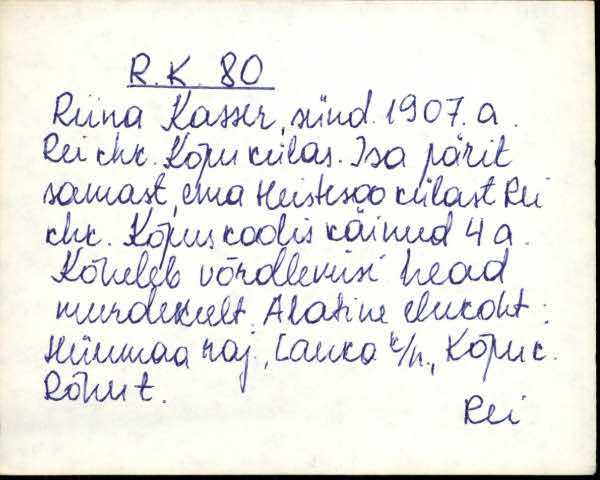 R.K. 80
Riina Kasser, sünd. 1907. a.
Rei chk. Kõpu külas. Isa pärit
samast, ema Heistesoo külast Rei
chk. Kõpus koolis käinud 4 a.
Kõneleb võrdlemisi head
murdekeelt. Alatine elukoht:
Hiiumaa raj., Lauka k/n., Kõpu k.
Rõhu t.
Rei